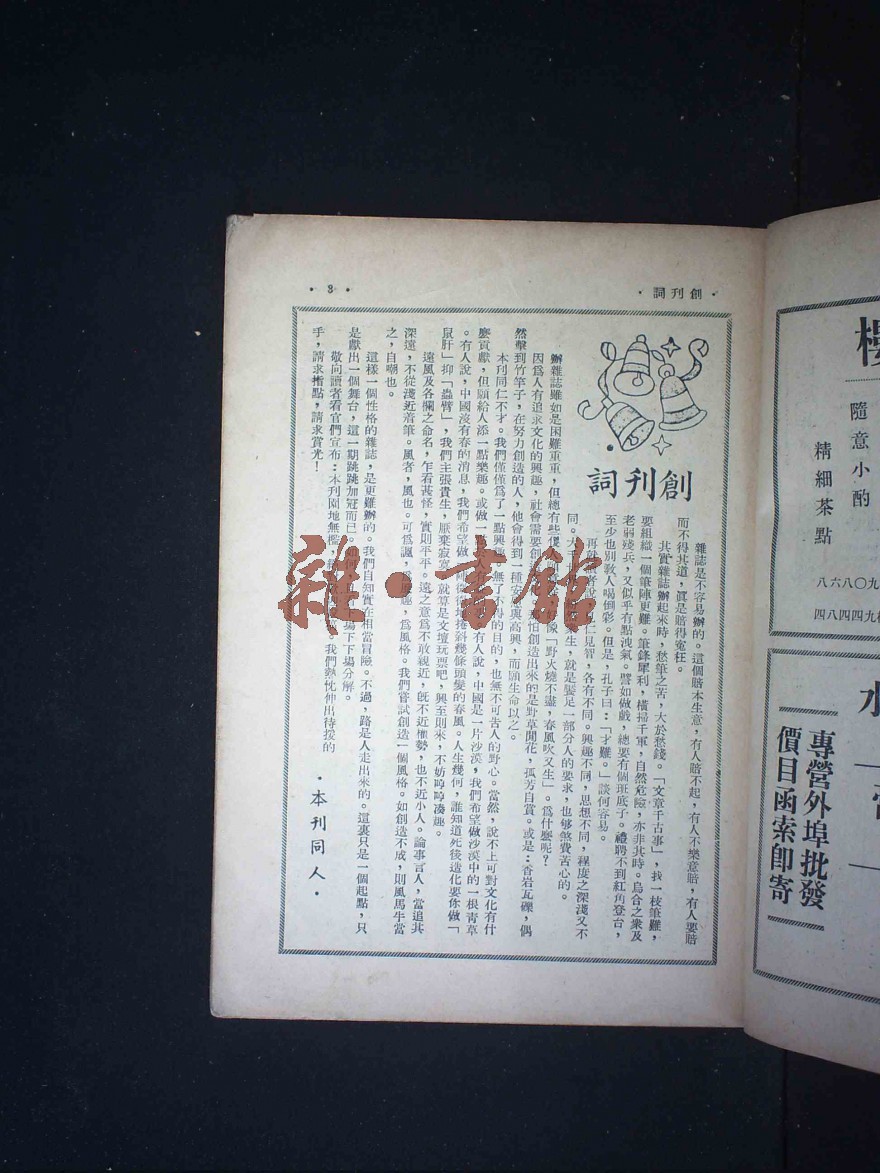 ·創刊詞·
·3·
創刊詞
雜誌是不容易辦的。這個賠本生意，有人賠不起，有人不樂意賠，有人要賠
而不得其道，眞是賠得寃枉。
其實雜誌辦起來時，愁筆之苦，大於愁錢。「文章千古事」，找一枝筆難，
要組織一個筆陣更難。筆鋒犀利，橫掃千軍，自然危險，亦非其時。烏合之衆及
老弱殘兵，又似乎有點洩氣。譬如做戲，總要有個班底子。禮聘不到紅角登台，
至少也別敎人喝倒彩。但是，孔子曰：「才難。」談何容易。
再就讀者說，見仁見智，各有不同。興趣不同，思想不同，程度之深淺又不
同。大 衆生，就是襲足一部分人的要求，也够煞費苦心的。
辦雜誌雖如是困難重重，但總有些傻人 好像「野火燒不盡，春風吹又生」。爲什麼呢？
因爲人有追求文化的興趣，社會需要創 怕創造出來的是野草閒花，孤芳自賞。或是：香岩瓦礫，偶
然擊到竹竿子，在努力創造的人，他會得到一種安慰與高興，而願生命以之。
本刊同仁不才。我們僅僅爲了一點興趣，無了不得的目的，也無不可告人的野心。當然，說不上可對文化有什
麼貢獻，但願給人添一點樂趣。或做一點 有人說，中國是一片沙漠，我們希望做沙漠中的一根靑草
。有人說，中國沒有春的消息，我們希望做一陣 地捲斜幾條頭髮的春風。人生幾何，誰知道死後造化要你做「
鼠肝」抑「蟲臂」，我們主張貴生，厭棄寂寞，就算是文壇玩票吧，興至則來，不妨哼哼凑趣。
遠風及各欄之命名，乍看甚怪，實則平平。遠之意爲不敢親近，旣不近權勢，也不近小人。論事言人，當追其
深遠，不從淺近着筆。風者，風也。可爲諷，爲風趣，爲風格。我們嘗試創造一個風格。如創造不成，則風馬牛當
之，自嘲也。
這樣一個性格的雜誌，是更難辦的。我們自知實在相當冒險。不過，路是人走出來的。這裏只是一個起點，只
是獻出一個舞台，這一期跳跳加冠而已。如何 且看下場下下場分解。
敬向讀者看官們宣布：本刊園地無檻， 我們熱忱伸出待援的
手，請求指點，請求賞光！
·本刊同人·
樓
隨意小酌
精細茶點
八六八〇九
四八四四九
水
專營外埠批發
價目函索卽寄
雜·書館